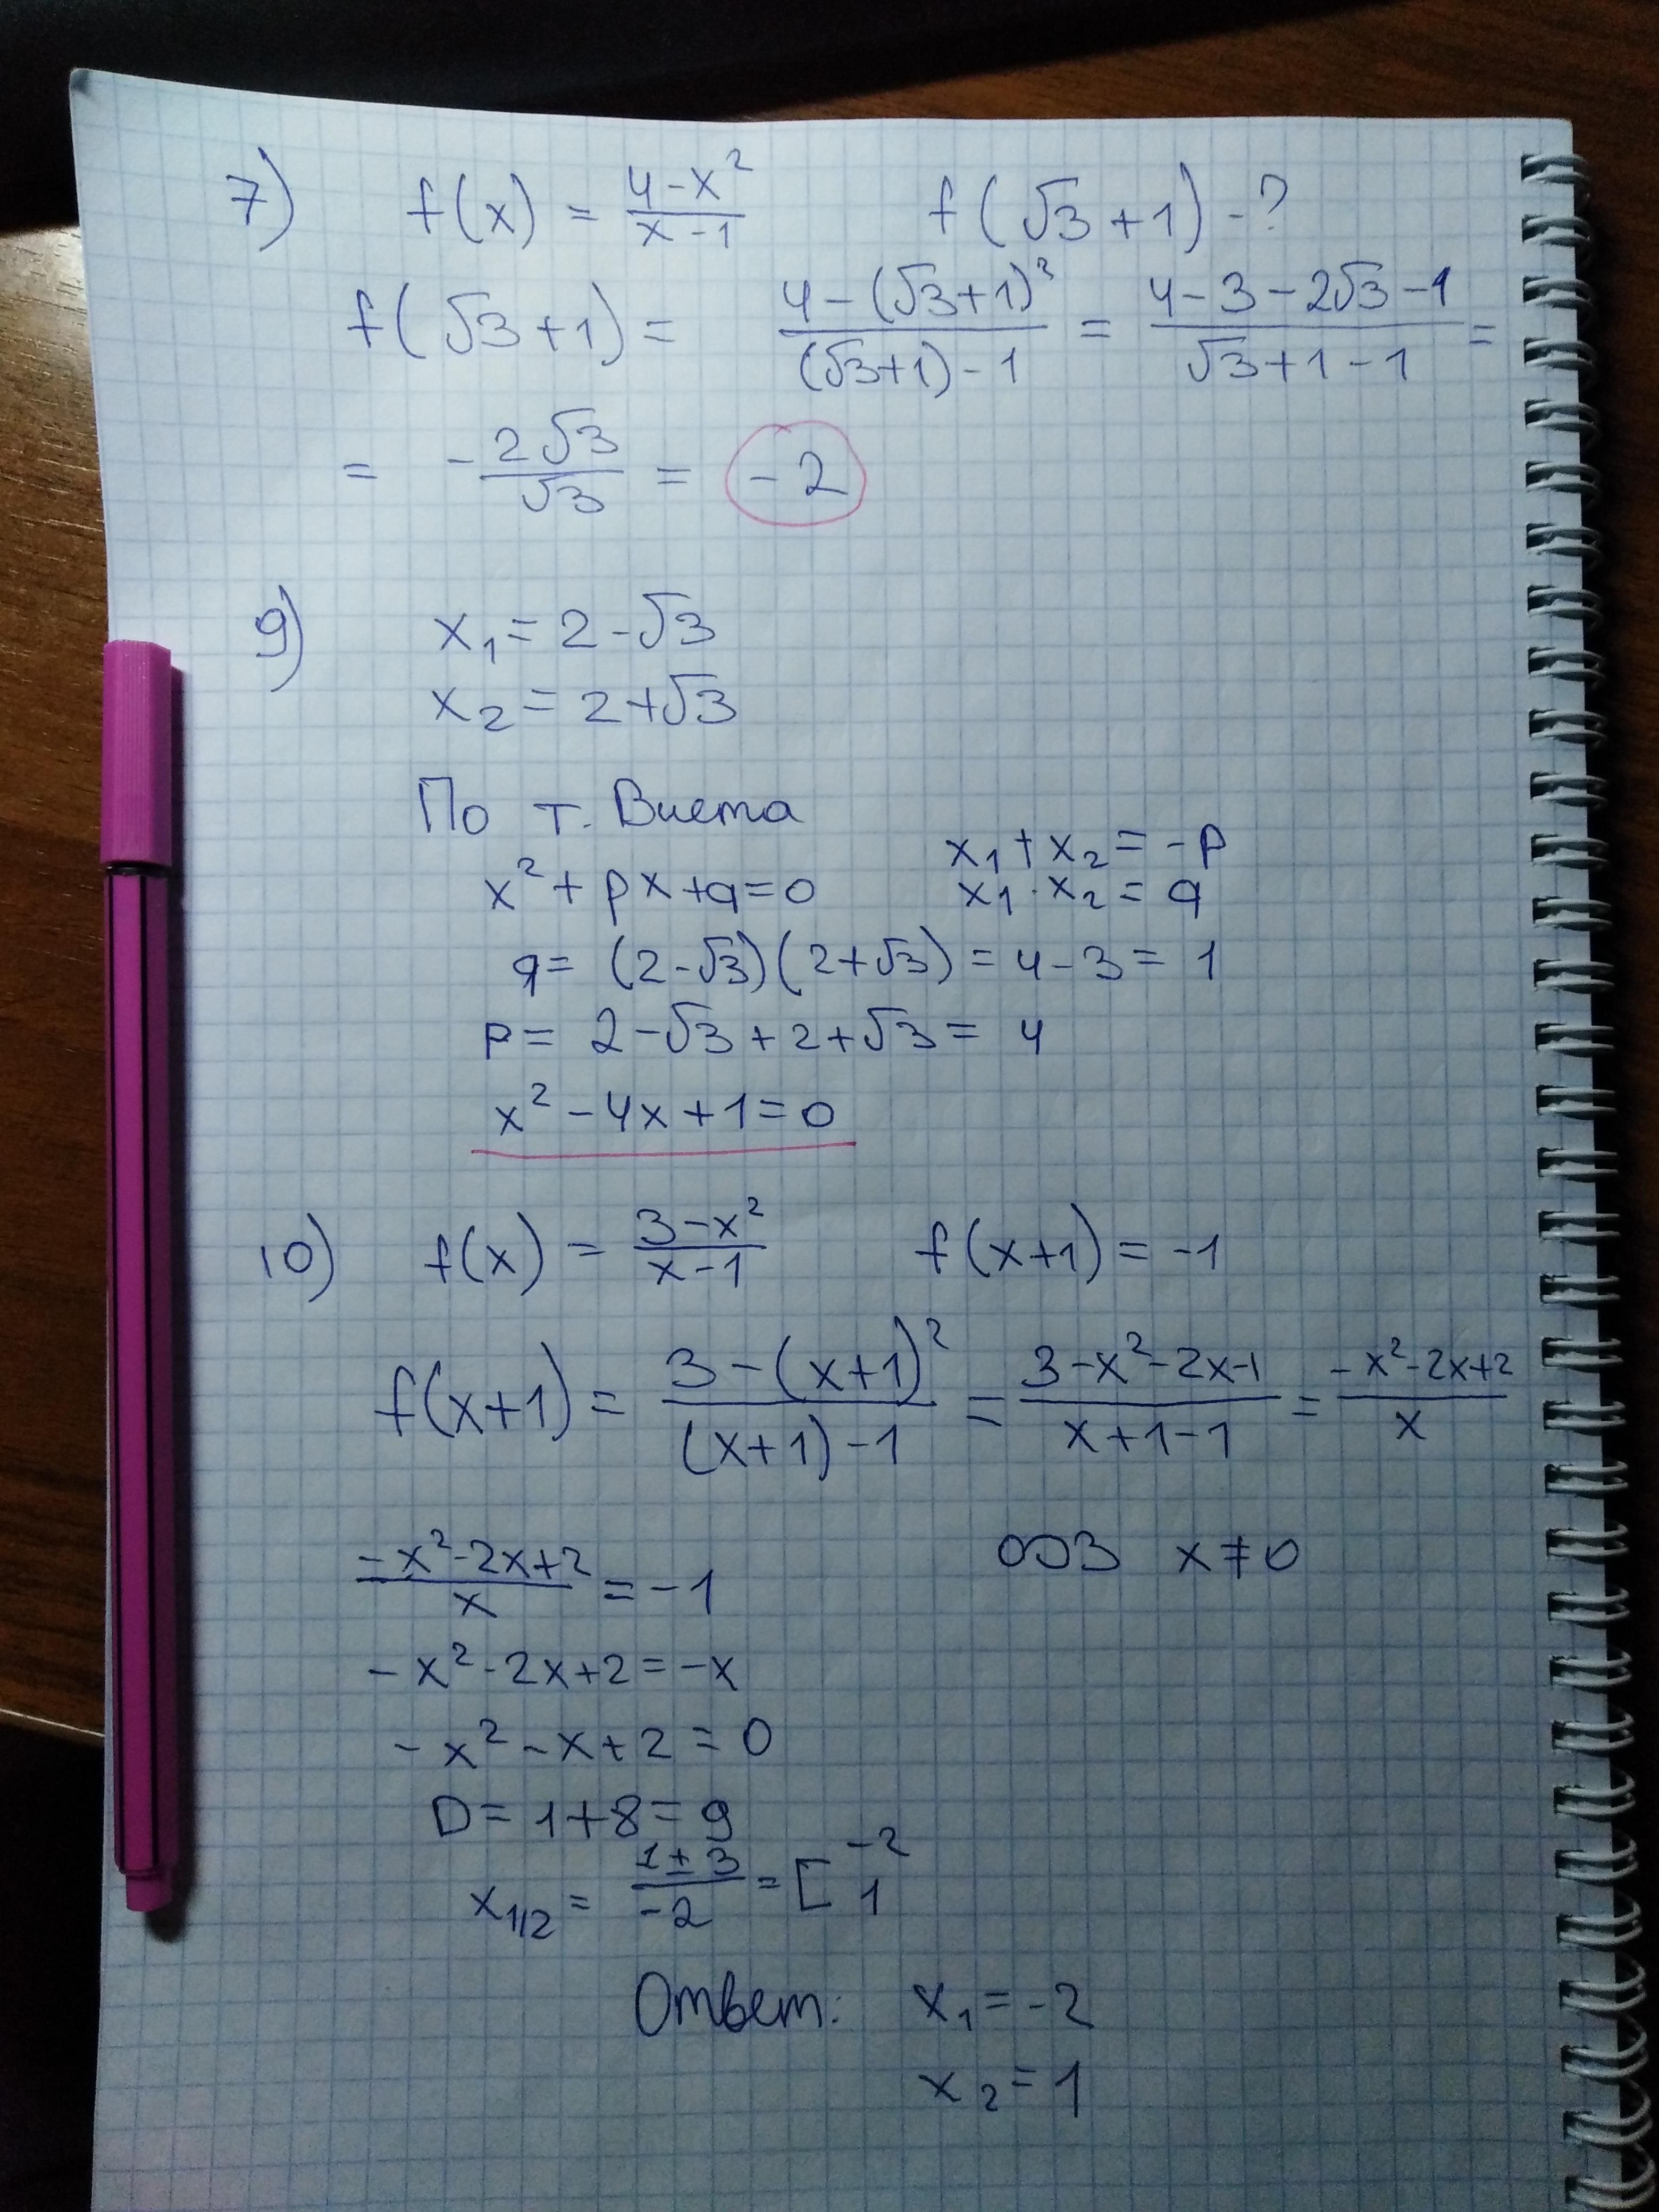 7) f(x) = (4-x²)/(x-1) f(√3+1) -?
f(√3+1) = (4-(√3+1)²)/((√3+1)-1) = (4-3-2√3-1)/(√3+1-1) =
= -2√3/√3 = -2
9) x₁ = 2-√3
x₂ = 2+√3
По т. Виета
x₁+x₂ = -p
x²+px+q=0 x₁·x₂ = q
q = (2-√3)(2+√3) = 4-3 = 1
p = 2-√3+2+√3 = 4
x²-4x+1=0
10) f(x) = (3-x²)/(x-1) f(x+1) = -1
f(x+1) = (3-(x+1)²)/((x+1)-1) = (3-x²-2x-1)/(x+1-1) = (-x²-2x+2)/x
(-x²-2x+2)/x = -1 ОДЗ x≠0
-x²-2x+2=-x
-x²-x+2=0
D=1+8=9
x₁/₂ = (1±3)/-2 = [ -2
1
Ответ: x₁=-2
x₂=1